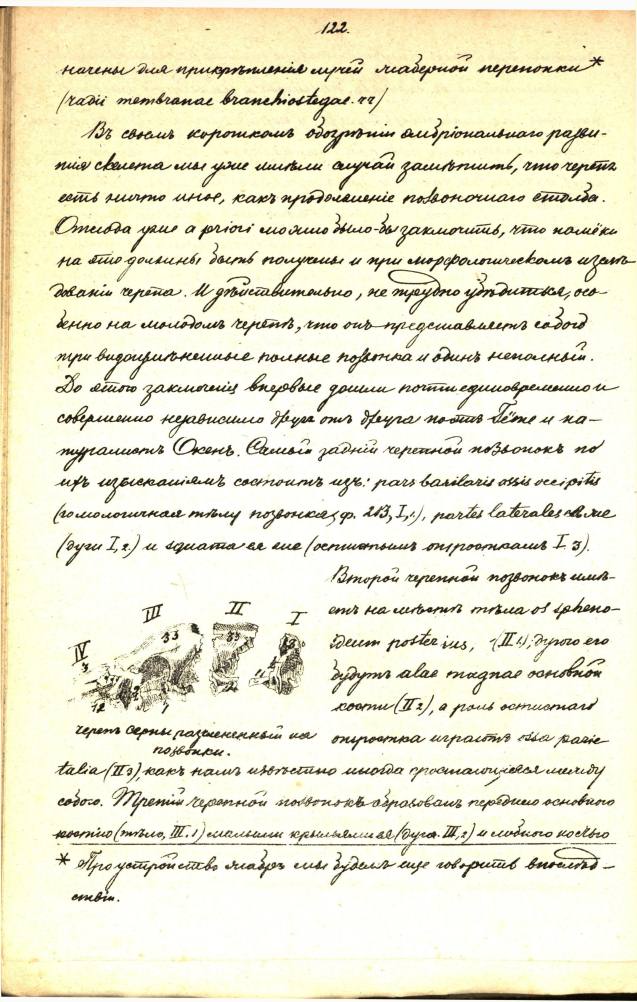 122.
начены для прикрѣпленія лучей жаберной перепонки *
(radii membranae branchiostegae. rr)
Въ своемъ короткомъ обозрѣніи эмбріональнаго разви-
тія скелета мы уже имѣли случай замѣтить, что черепъ
есть ничто иное, какъ продолженіе позвоночнаго столба.
Отсюда уже a priori можно было-бы заключить, что намёки
на это должны быть получены и при морфологическомъ изслѣ-
дованіи черепа. И дѣйствительно, не трудно убѣдиться, осо-
бенно на молодомъ черепѣ, что онъ представляетъ собой
три видоизмѣненные полные позвонка и одинъ неполный.
До этого заключенія впервые дошли почти единовременно и
совершенно независимо другъ отъ друга поэтъ Гёте и на-
туралистъ Окенъ. Самый задній черепной позвонокъ по
ихъ изысканіямъ состоитъ изъ: pars basilaris ossis occipitis
(гомологичная тѣлу позвонка, ф. 213, I, 1.), partes laterales
(дуги I, 2.) и squama ея же (остистымъ отросткамъ I 3).
Второй черепной позвонокъ имѣ-
етъ на мѣстѣ тѣла os spheno-
ideum posterius, (II 1.); дугою его
будутъ alae magnae основной
кости (II 2), а роль остистаго
отростка играютъ ossa parie-
III II I
IV
33 33
3
12
черепъ серны разчлененный на
позвонки.
talia (II 3), какъ намъ извѣстно иногда сростающіеся между
собою. Третій черепной позвонокъ образованъ переднею основного
костію (тѣло, III. 1) малыми крыльями ея (дуга III, 2) и лобного костью
* Про устройство жабръ мы будемъ еще говорить впослѣд-
ствіи.